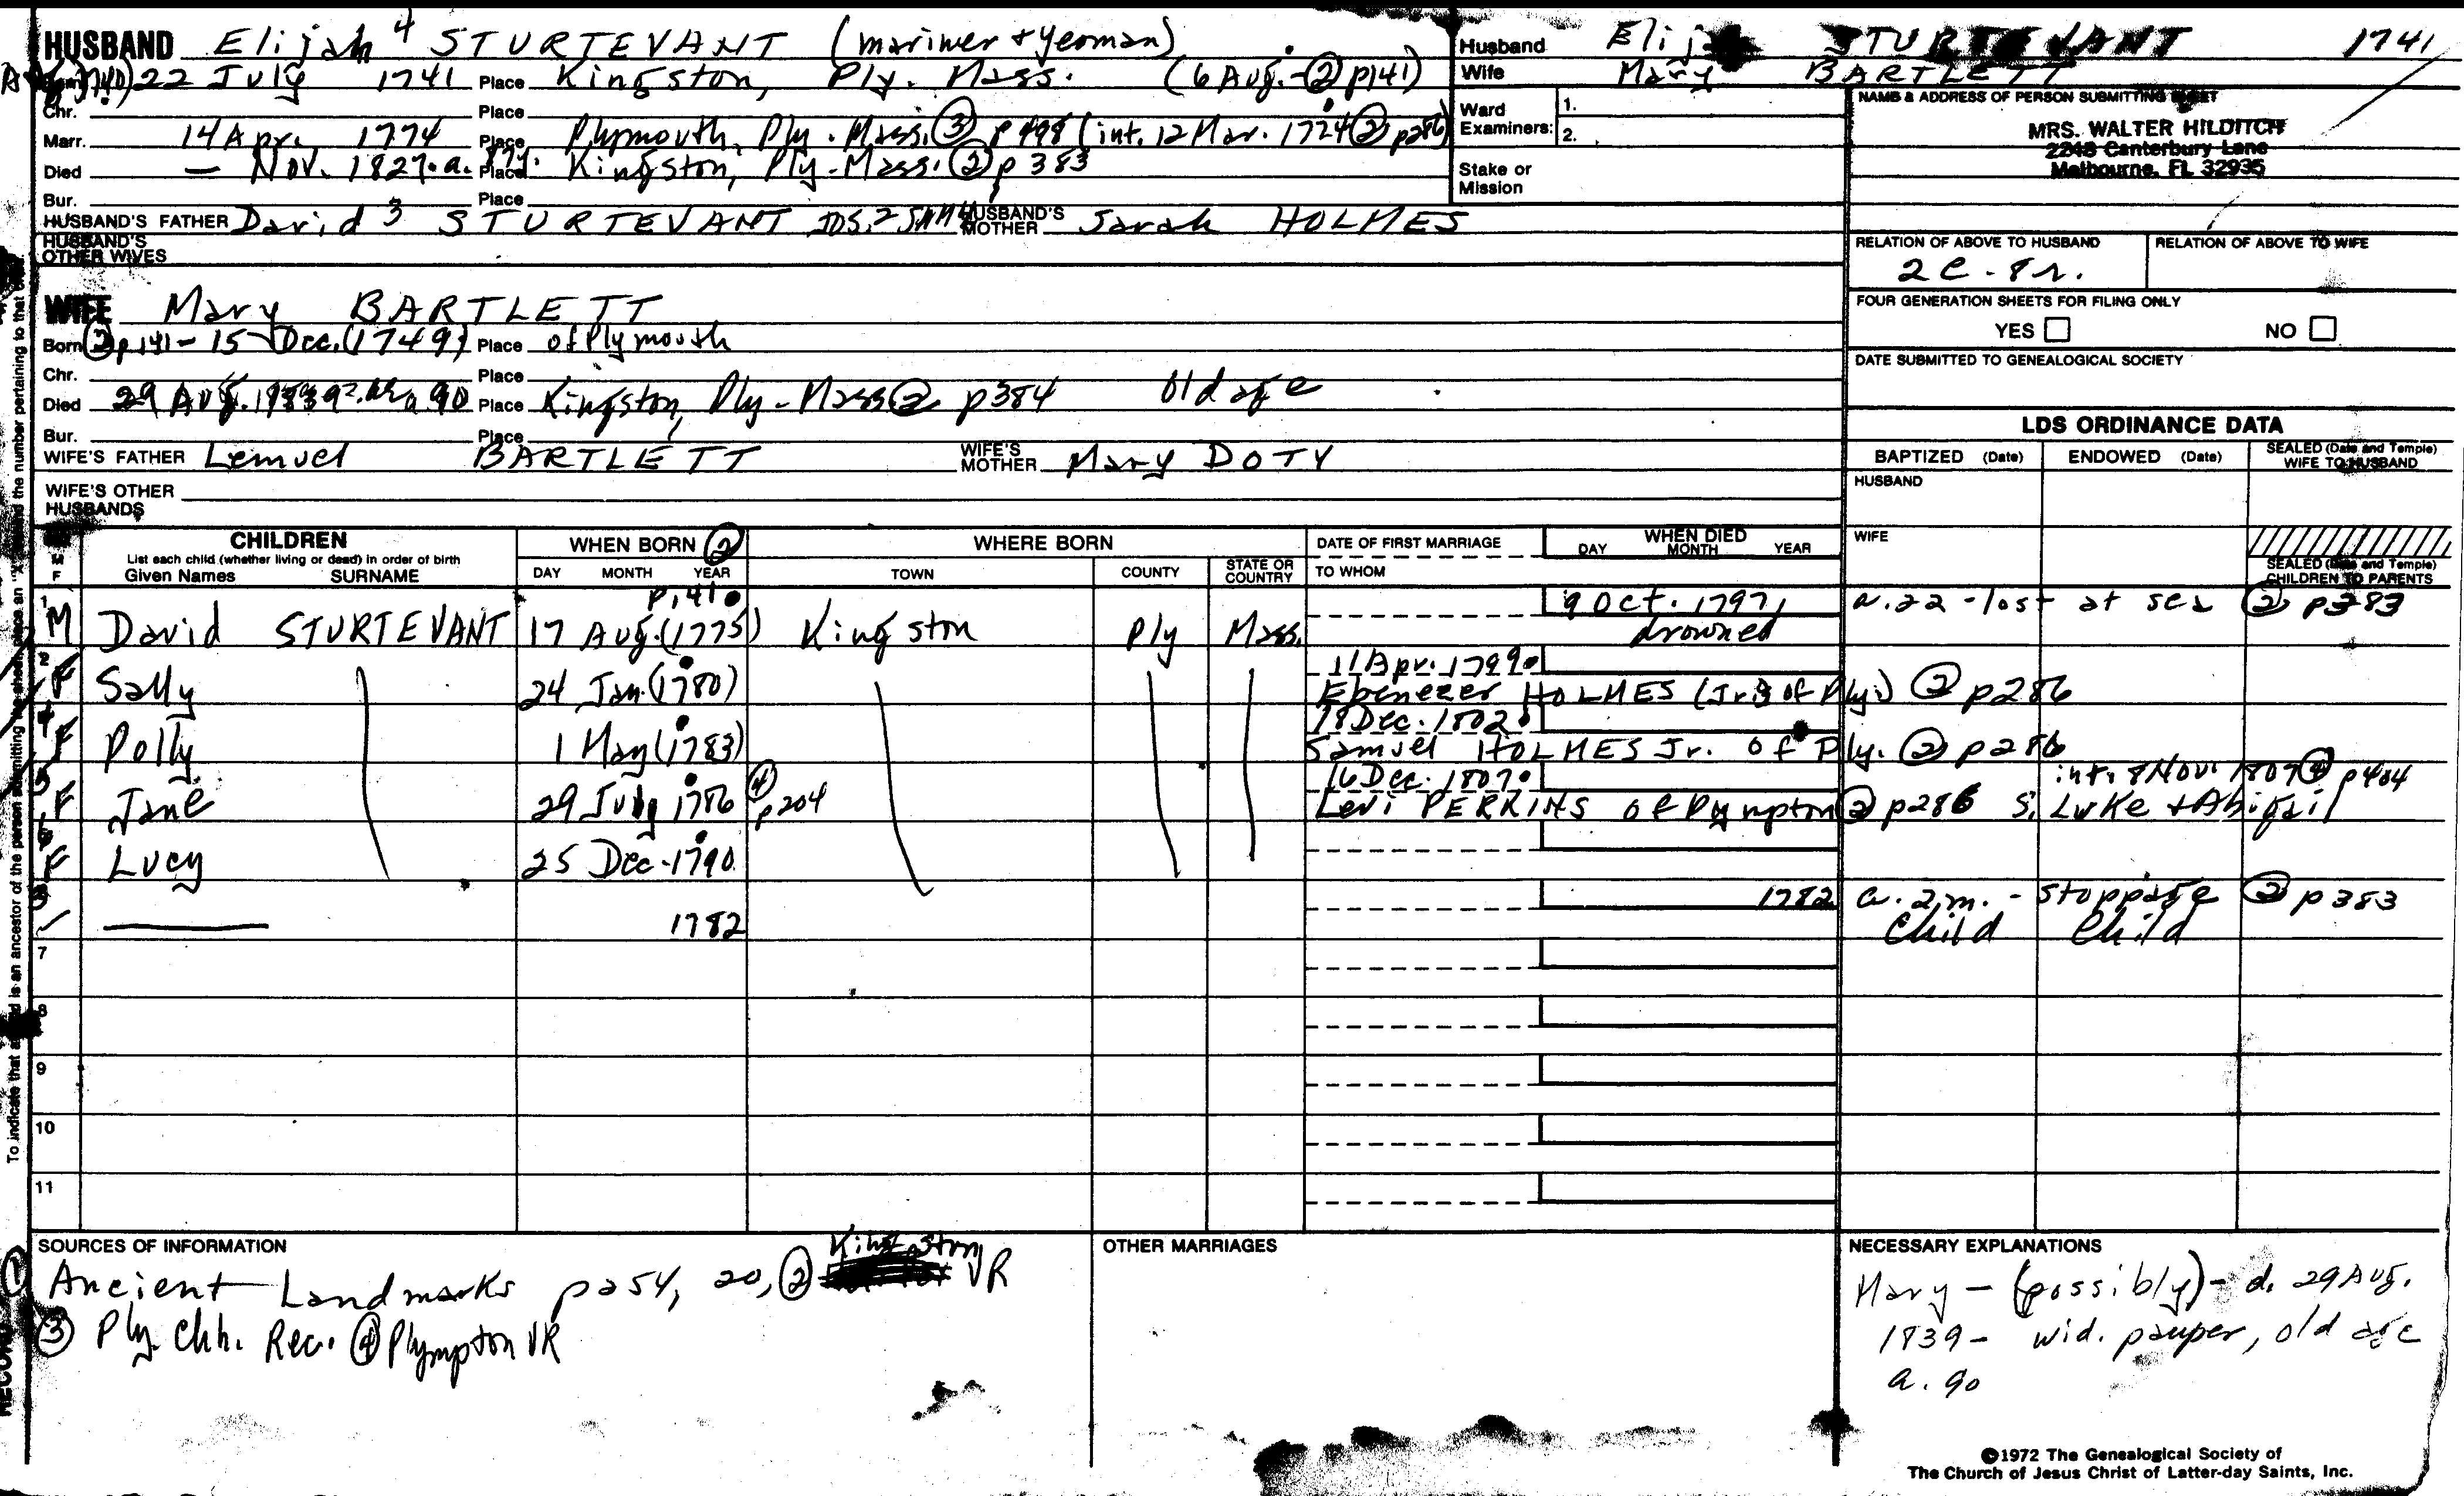 HUSBAND Elijah 4 STURTEVANT (mariner + yeoman)
22 July 1741 Place Kingston, Ply. Mass. (6 Aug. - ② p141)
Chr. Place
Marr. 14 Apr. 1774 Place Plymouth, Ply. Mass. ③ p498 (int. 12 Mar. 1724 ② p286)
Died — Nov. 1827. a. Place Kingston, Ply-Mass. ② p383
Bur. Place
HUSBAND'S FATHER David 3 STURTEVANT HUSBAND'S MOTHER Sarah HOLMES
HUSBAND'S OTHER WIVES
Husband STURTEVANT 1741
Wife Mary BARTLETT
Ward Examiners: 1.
2.
Stake or Mission
NAME & ADDRESS OF PERSON SUBMITTING SHEET
MRS. WALTER HILDITCH
2248 Canterbury Lane
Melbourne, FL 32935
RELATION OF ABOVE TO HUSBAND RELATION OF ABOVE TO WIFE
2 C - 8 r.
FOUR GENERATION SHEETS FOR FILING ONLY
YES NO
DATE SUBMITTED TO GENEALOGICAL SOCIETY
WIFE Mary BARTLETT
Born ② p141 - 15 Dec. (1749) Place of Plymouth
Chr. Place
Died 29 Aug. 1839 a 90 Place Kingston, Ply-Mass ② p384 old age
Bur. Place
WIFE'S FATHER Lemuel BARTLETT WIFE'S MOTHER Mary DOTY
WIFE'S OTHER HUSBANDS
LDS ORDINANCE DATA
BAPTIZED (Date) ENDOWED (Date) SEALED (Date and Temple) WIFE TO HUSBAND
HUSBAND
WIFE
SEALED (Date and Temple) CHILDREN TO PARENTS
M F CHILDREN WHEN BORN ② WHERE BORN DATE OF FIRST MARRIAGE WHEN DIED
List each child (whether living or dead) in order of birth
Given Names SURNAME DAY MONTH YEAR TOWN COUNTY STATE OR COUNTRY TO WHOM DAY MONTH YEAR
p.141
1 M David STURTEVANT 17 Aug. (1775) Kingston Ply Mass. 9 Oct. 1797, drowned a. 22 - lost at sea ② p383
2 F Sally 24 Jan. (1780) 11 Apr. 1799
Ebenezer HOLMES (Jr. of Ply.) ② p286
4 F Polly 1 May (1783) 18 Dec. 1802
Samuel HOLMES Jr. of Ply. ② p286
5 F Jane 29 July 1786 ④ p204 16 Dec. 1807 int. 8 Nov. 1807 ④ p404
Levi PERKINS of Plympton ② p286 S. Luke + Abigail
6 F Lucy 25 Dec - 1790
3 1782 1782 a. 2 m. - stoppage ② p383
Child Child
7
8
9
10
11
To indicate that a child is an ancestor of the person submitting the sheet, place an "X" behind the number pertaining to that child.
SOURCES OF INFORMATION
① Ancient Landmarks p254, 20, ② Kingston VR
③ Ply. Chh. Rec. ④ Plympton VR
OTHER MARRIAGES
NECESSARY EXPLANATIONS
Mary - (possibly) - d. 29 Aug.
1839 - wid. pauper, old age
a. 90
RECORD
©1972 The Genealogical Society of
The Church of Jesus Christ of Latter-day Saints, Inc.